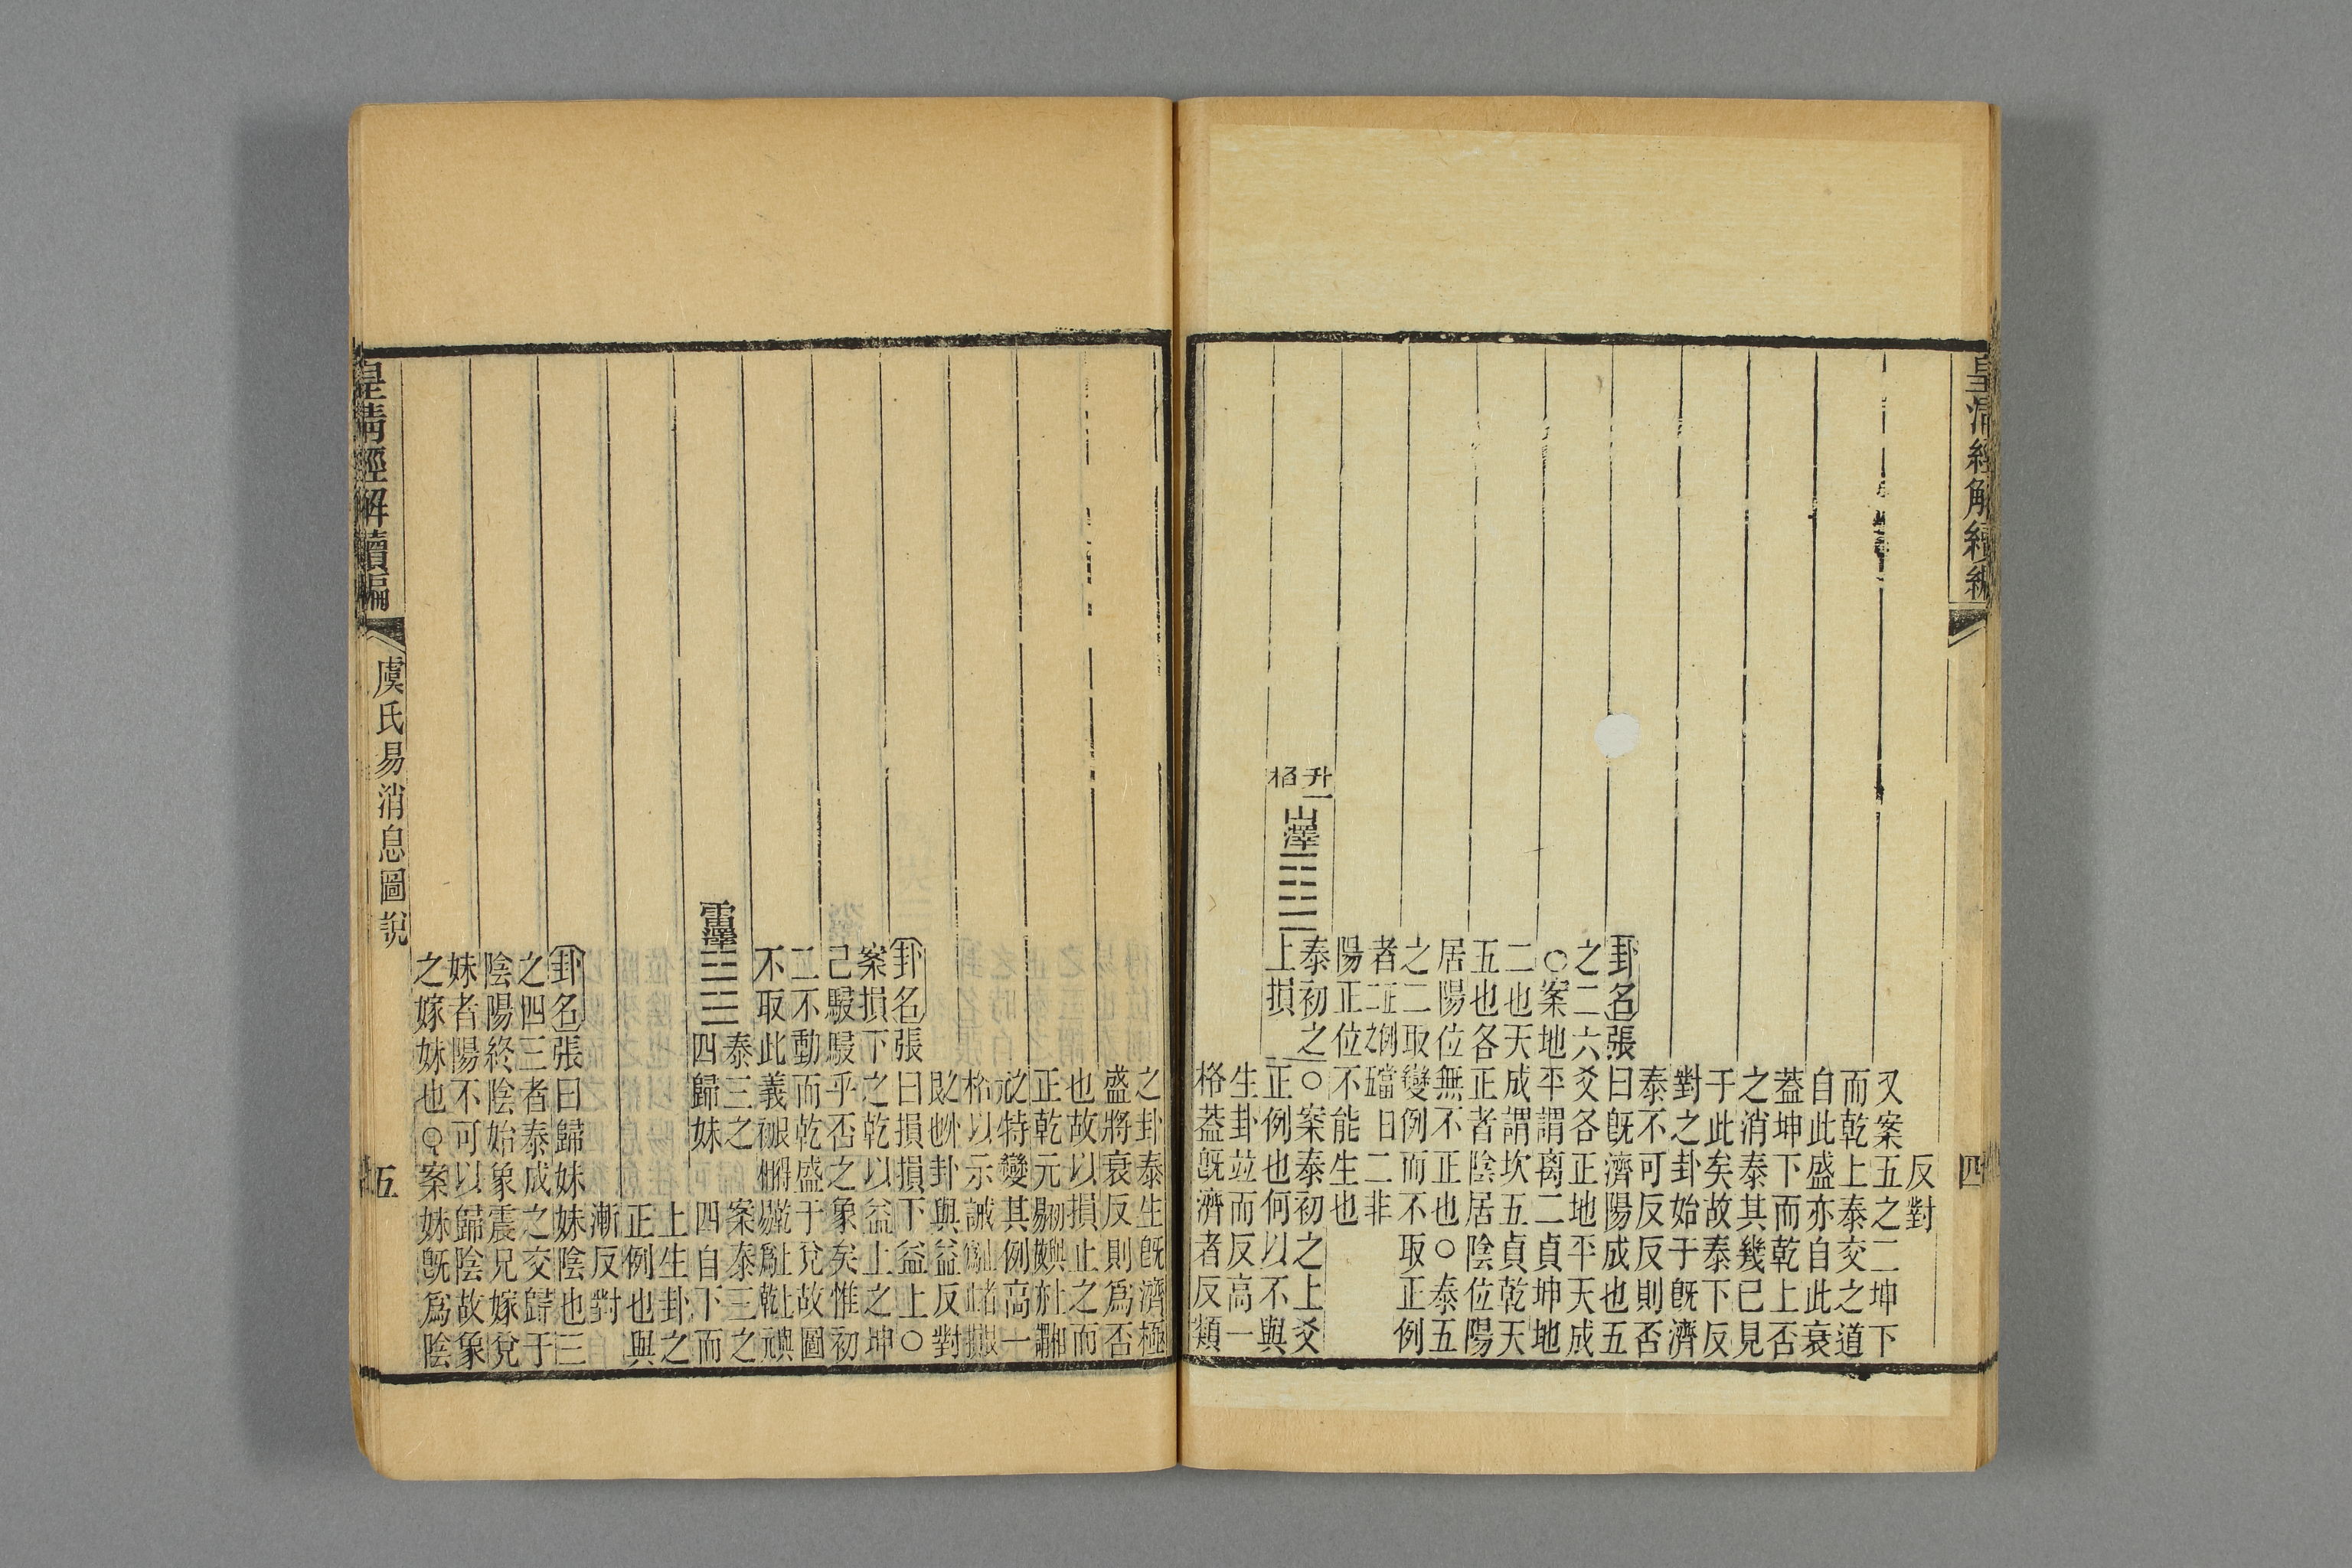 皇清經解續編
四
反對
又案五之二坤下
而乾上泰交之道
自此盛亦自此衰
蓋坤下而乾上否
之消泰其幾已見
于此矣故泰下反
對之卦始于既濟
泰不可反反則否
卦名張曰既濟陽成也五
之二六爻各正地平天成
○案地平謂离二貞坤地
二也天成謂坎五貞乾天
五也各正者陰居陰位陽
居陽位無不正也○泰五
之二取變例而不取正例
陽正位不能生也
升一格
山澤
泰初之上損
○案泰初之上爻
正例也何以不與
生卦竝而反高一
格蓋既濟者反類
之卦泰生既濟極
盛將衰反則爲否
也故以損止之而
卦名張曰損損下益上○
案損下之乾以益上之坤
己駸駸乎否之象矣惟初
二不動而乾盛于兌故圖
雷澤
泰三之四歸妹
案泰三之
四自下而
上生卦之
正例也與
漸反對
卦名張曰歸妹妹陰也三
之四三者泰成之交歸于
陰陽終陰始象震兄嫁兌
妹者陽不可以歸陰故象
之嫁妹也○案妹既爲陰
皇清經解續編
虞氏易消息圖說
五